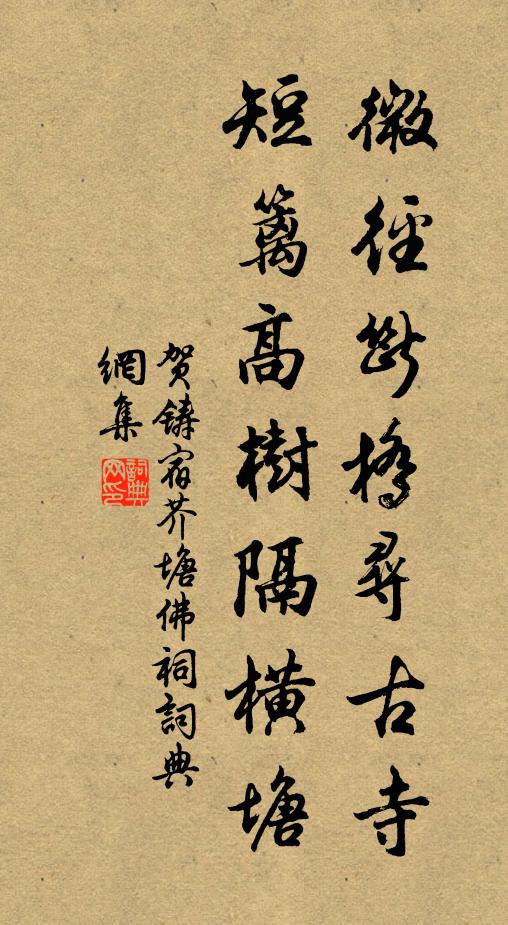 微徑斷橋尋古寺
短籬高樹隔橫塘
贺鑄宿芥塘佛祠詞典
網集
詞典網印